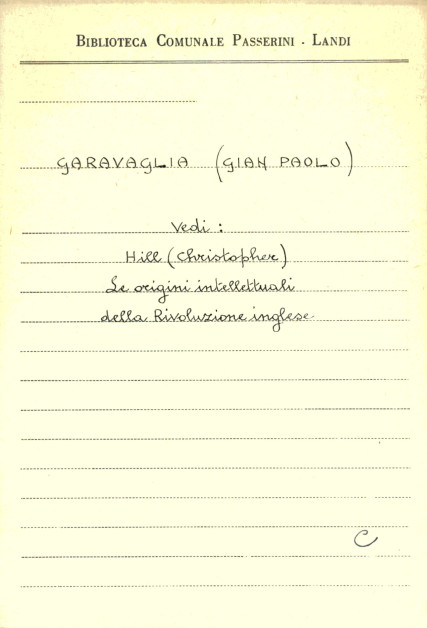 BIBLIOTECA COMUNALE PASSERINI - LANDI
GARAVAGLIA (GIAN PAOLO)
Vedi :
Hill (Christopher)
Le origini intellettuali
della Rivoluzione inglese
C